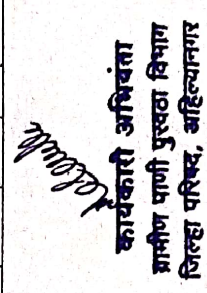 कार्यकारी अभियंता
ग्रामीण पाणी पुरवठा विभाग
जिल्हा परिषद, अहिल्यानगर